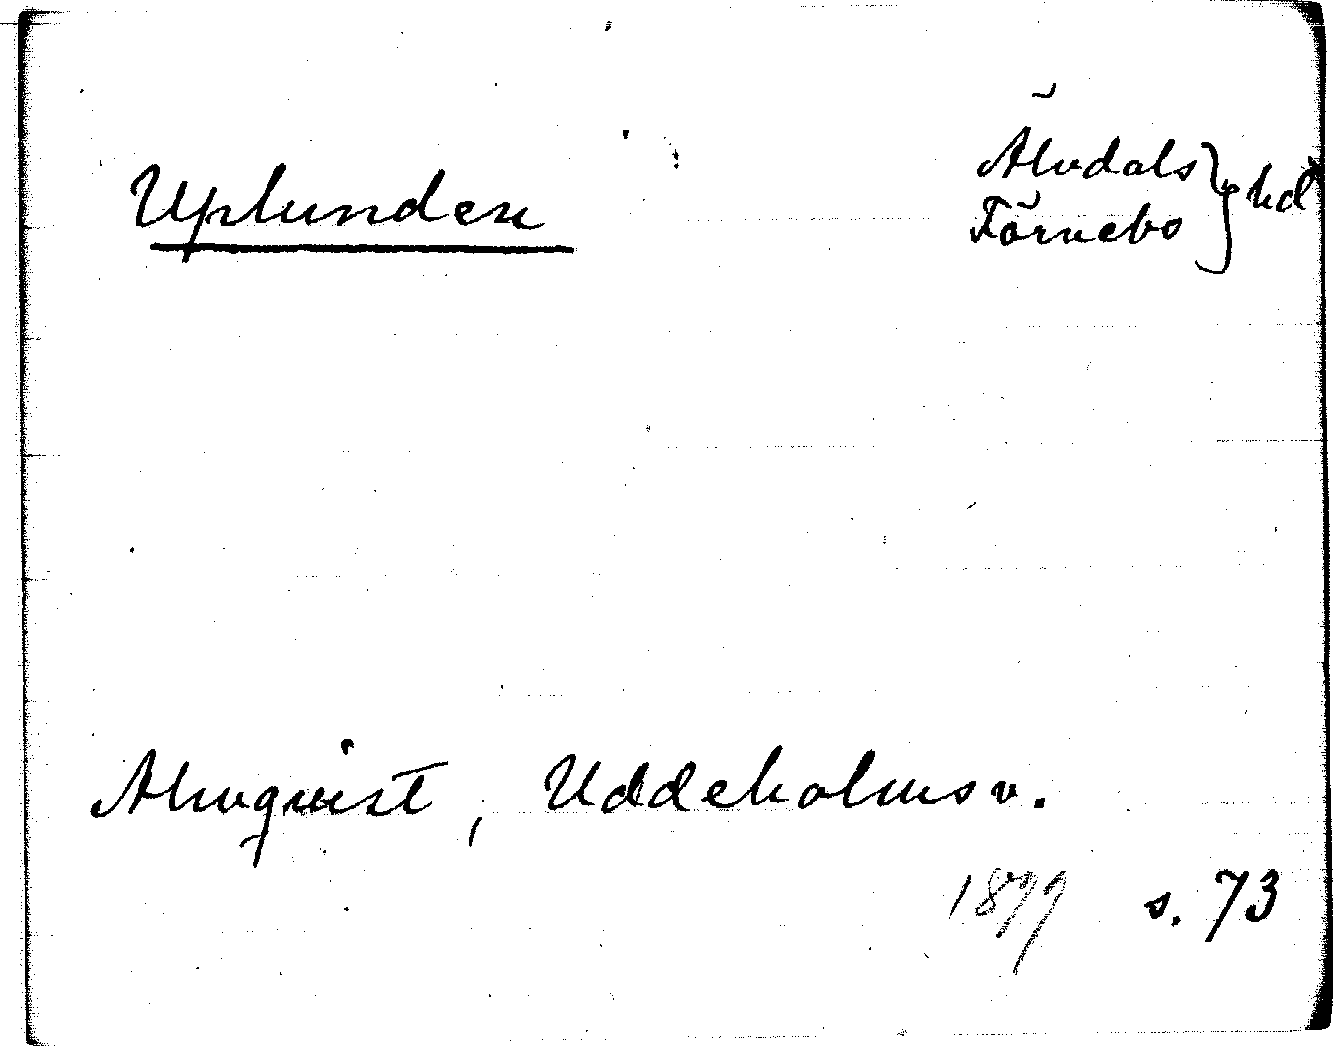 Uplunden
Älvdals } hd
Färnebo
Almqvist, Uddeholmsv.
1899 s. 73